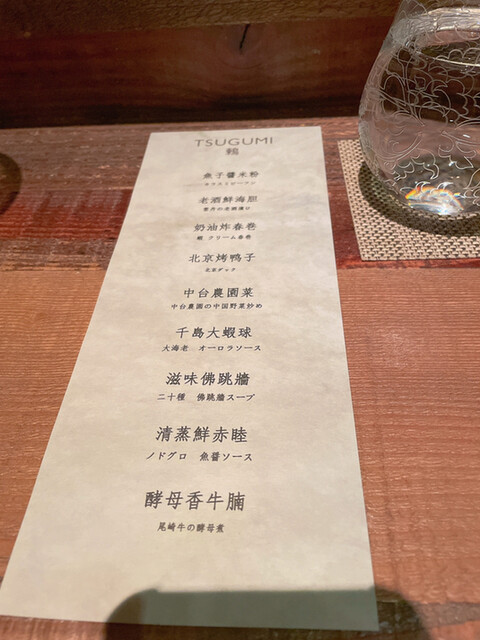 TSUGUMI
鶫
魚子醬米粉
キャヴィアビーフン
老酒鮮海胆
雲丹の老酒漬け
奶油炸春巻
蟹 クリーム春巻
北京烤鸭子
北京ダック
中台農園菜
中台農園の中国野菜炒め
千島大蝦球
大海老 オーロラソース
滋味佛跳牆
二十種 佛跳牆スープ
清蒸鮮赤睦
ノドグロ 魚醤ソース
酵母香牛腩
尾崎牛の酵母煮